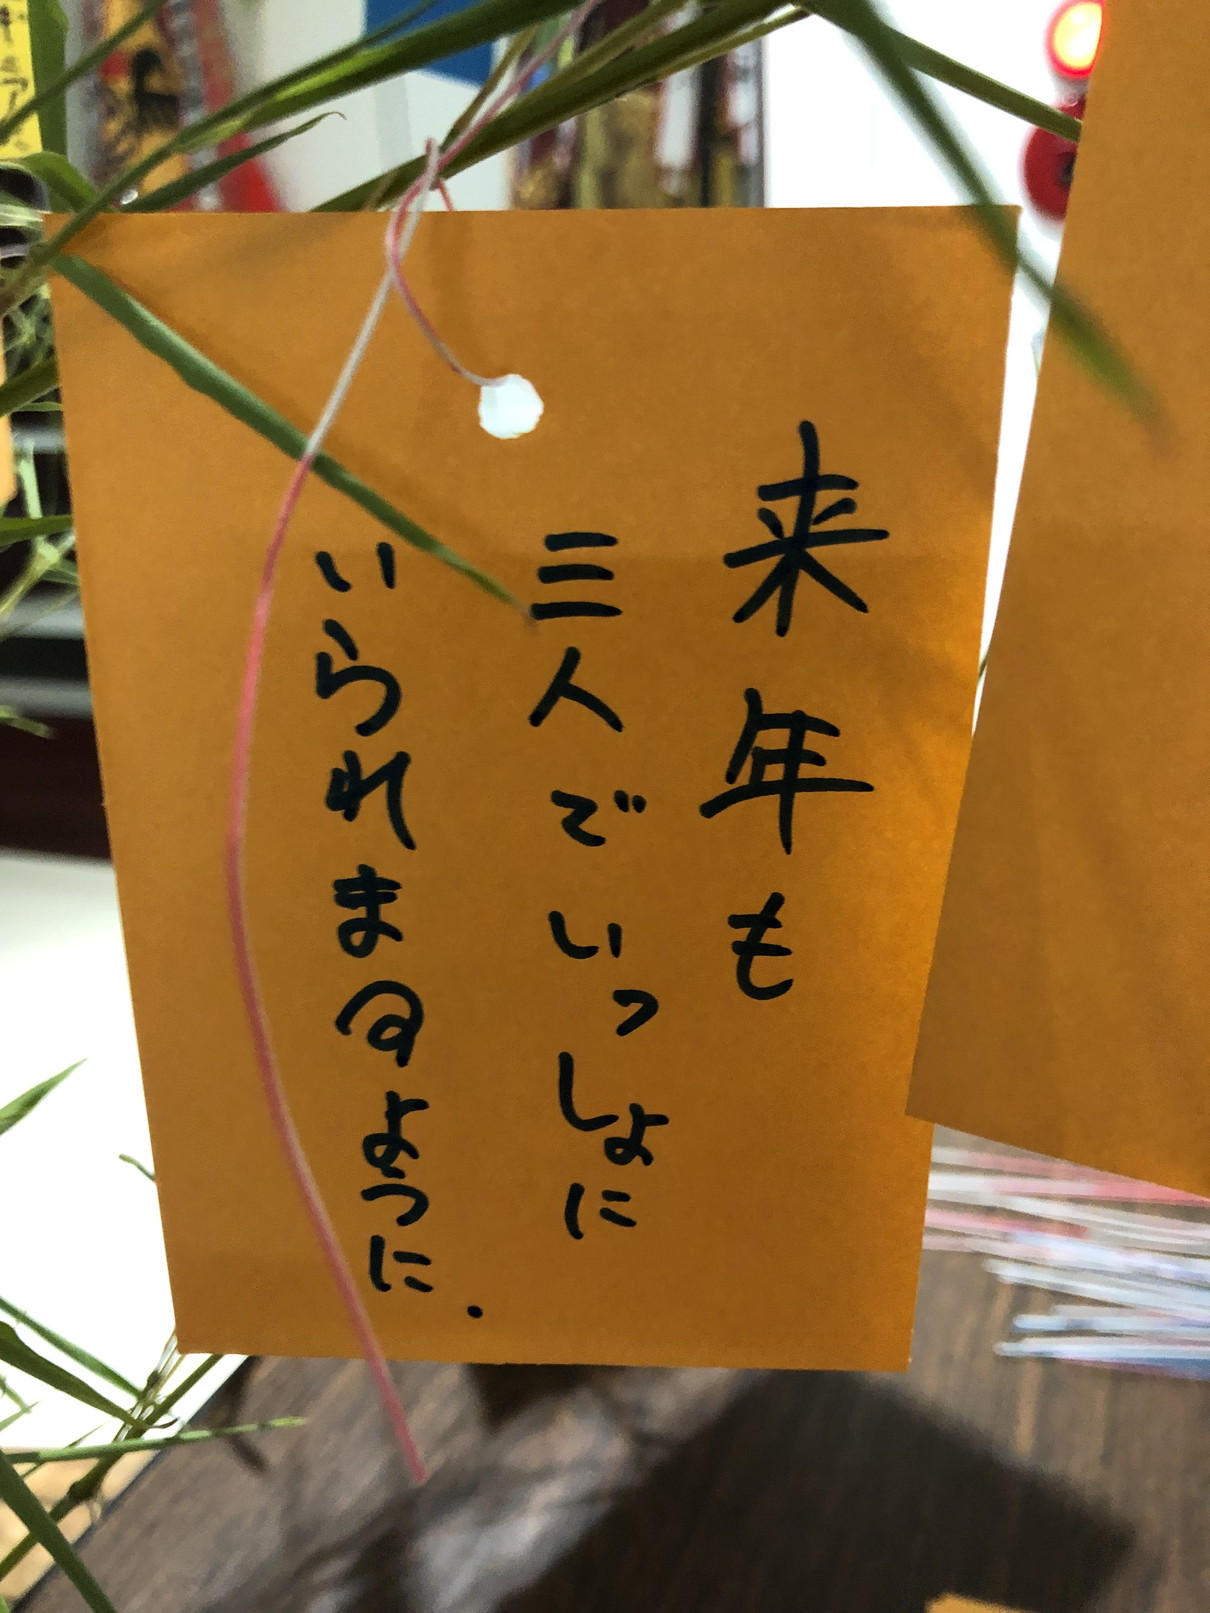 来年も
三人でいっしょに
いられますように.